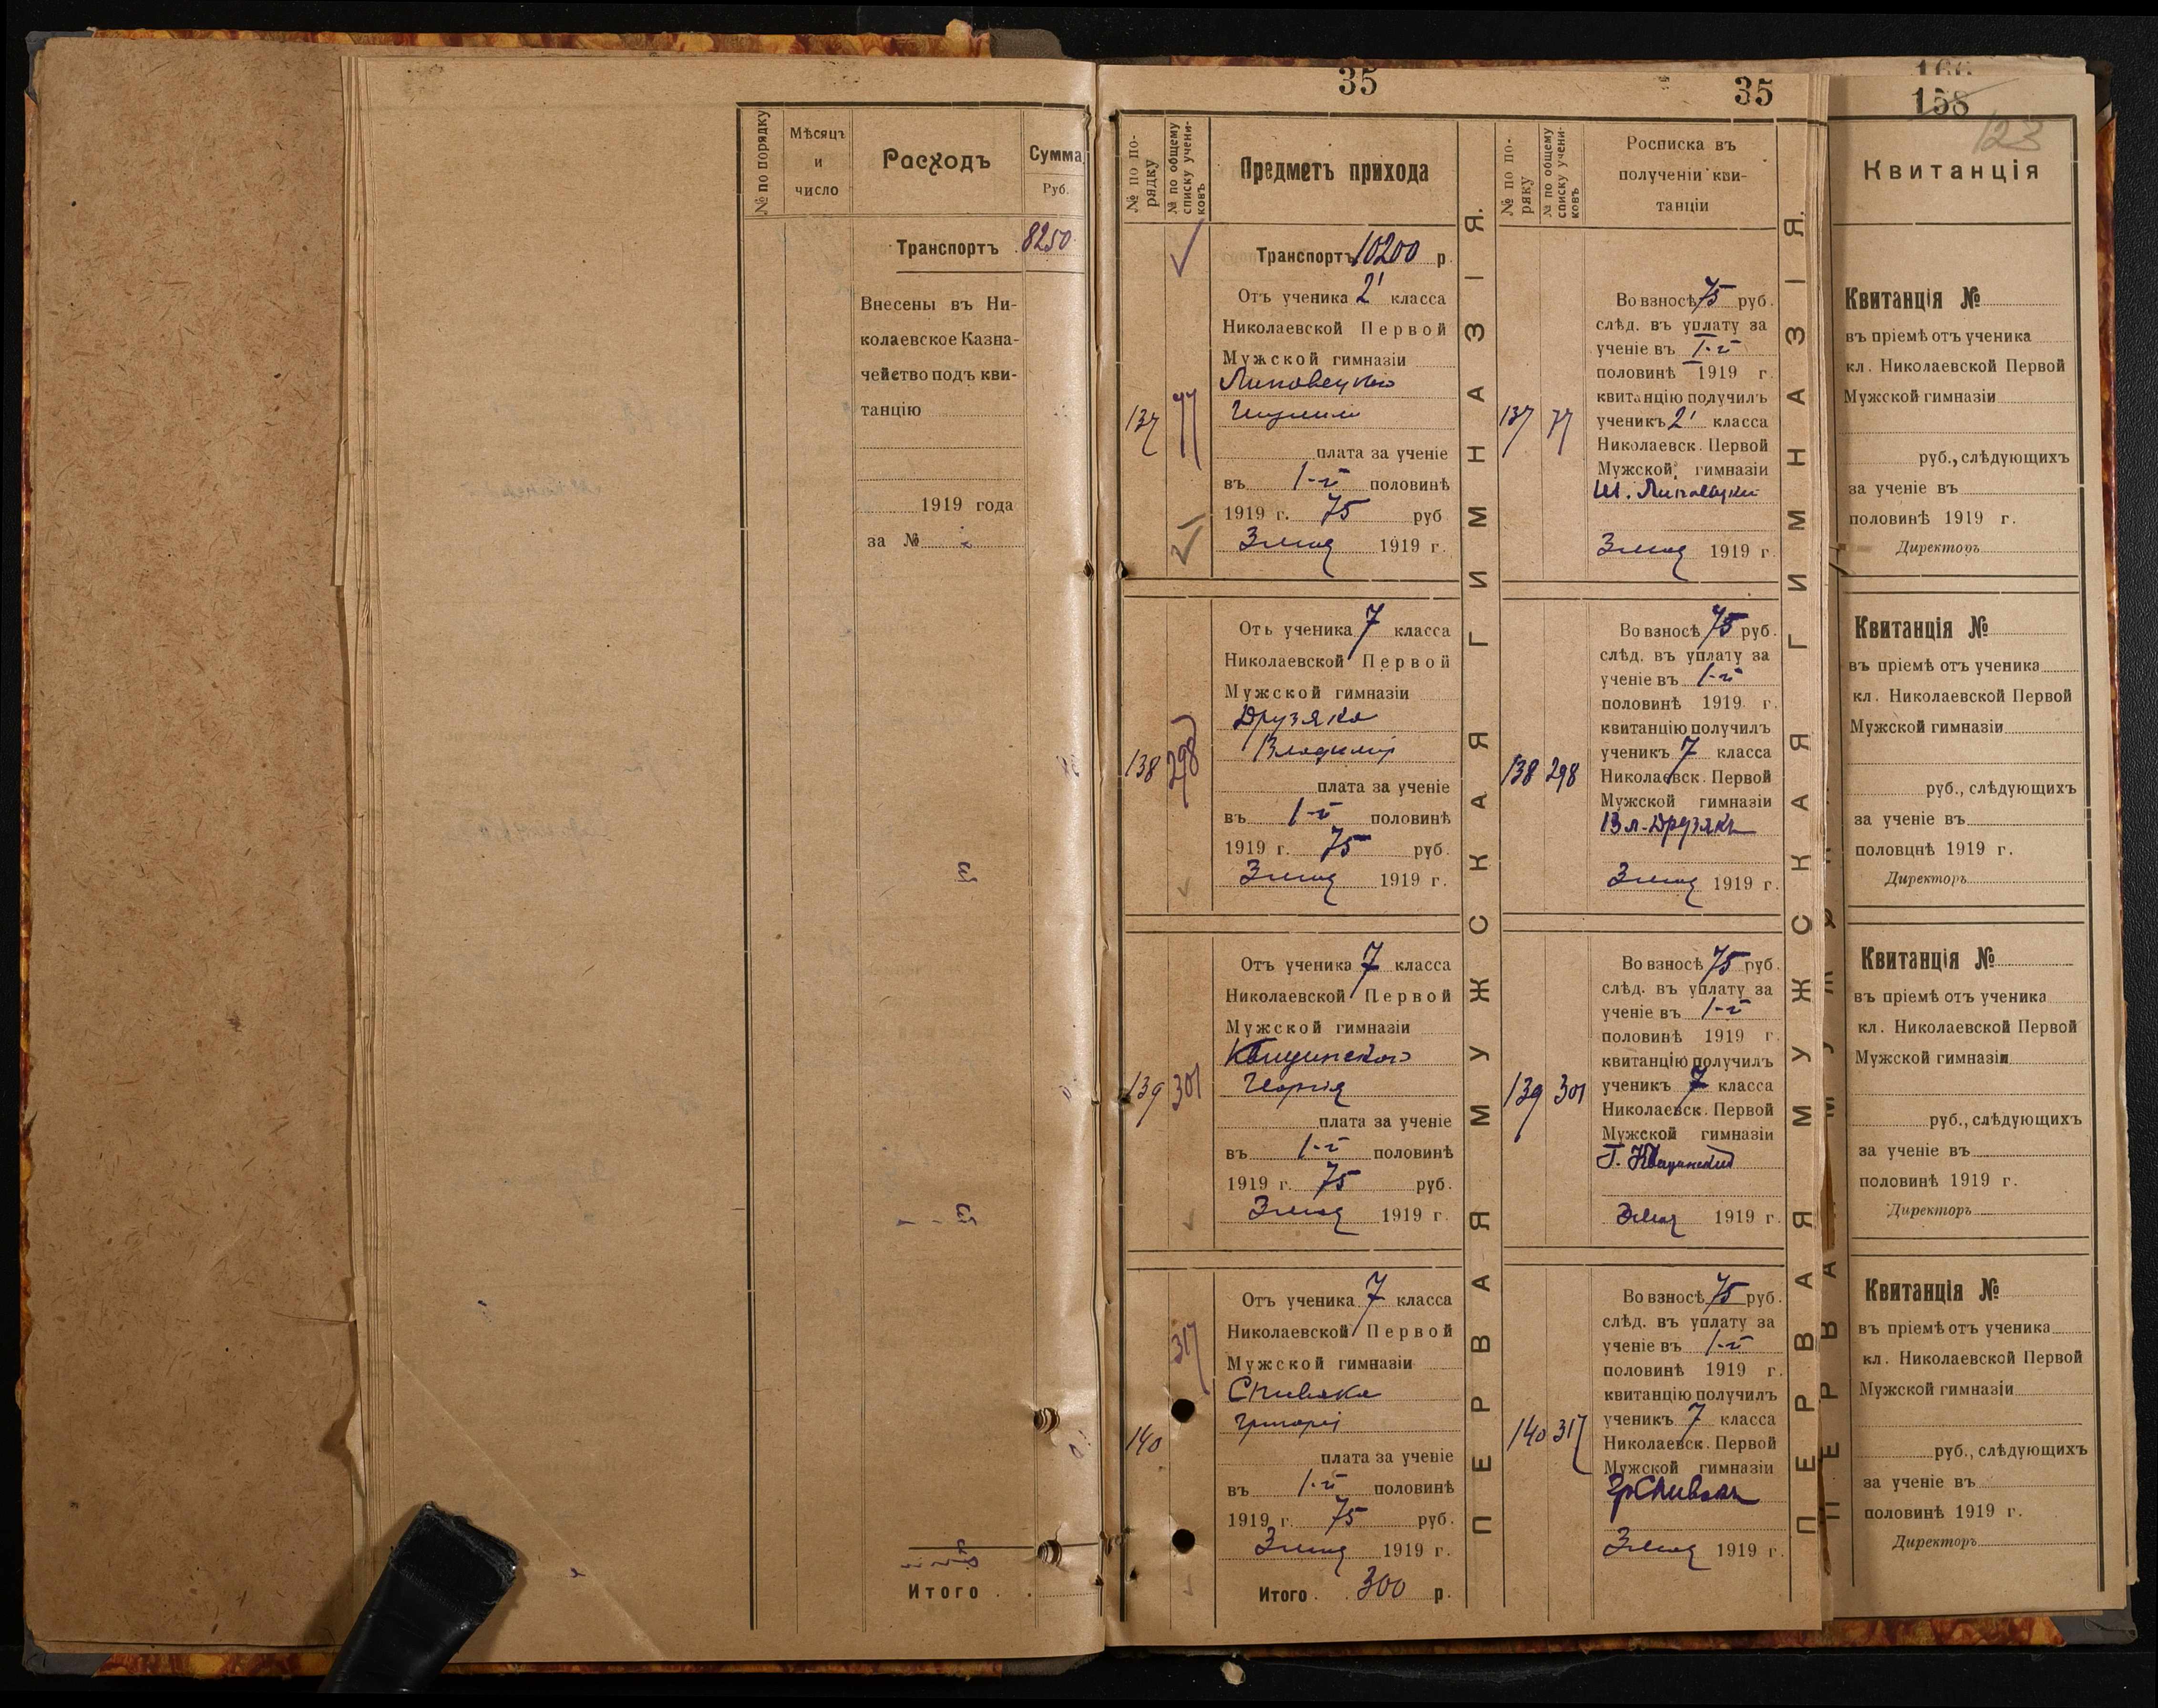 № по порядку
Мѣсяцъ
и
число
Расходъ
Сумма
Руб.
Транспортъ 8250
Внесены въ Ни-
колаевское Казна-
чейство подъ кви-
танцію
1919 года
за №
Итого
35
№ по по-
рядку
№ по общему
списку учени-
ковъ
Предметъ прихода
Транспортъ 10200 р.
Отъ ученика 2' класса
Николаевской Первой
Мужской гимназіи
Липовецкаго
137 77
плата за ученіе
въ 1-й половинѣ
1919 г. 75 руб
3 1919 г.
Отъ ученика 7 класса
Николаевской Первой
Мужской гимназіи
Друзяка
Владимір
138 298
плата за ученіе
въ 1-й половинѣ
1919 г. 75 руб.
3 1919 г.
Отъ ученика 7 класса
Николаевской Первой
Мужской гимназіи
Квицинскаго
Георгія
139 301
плата за ученіе
въ 1-й половинѣ
1919 г. 75 руб.
3 1919 г.
Отъ ученика 7 класса
Николаевской Первой
Мужской гимназіи
317
Спивака
Григорі
140
плата за ученіе
въ 1-й половинѣ
1919 г. 75 руб.
3 1919 г.
Итого 300 р.
ПЕРВАЯ МУЖСКАЯ ГИМНАЗІЯ.
35
№ по по-
ряку
№ по общему
списку учени-
ковъ
Росписка въ
полученіи кви-
танціи
Во взносѣ 75 руб.
слѣд. въ уплату за
ученіе въ I-й
половинѣ 1919 г.
квитанцію получилъ
137 77
ученикъ 2' класса
Николаевск. Первой
Мужской гимназіи
Ш. Липовецкій
3 1919 г.
Во взносѣ 75 руб.
слѣд. въ уплату за
ученіе въ 1-й
половинѣ 1919 г.
квитанцію получилъ
ученикъ 7 класса
138 298
Николаевск. Первой
Мужской гимназіи
Вл. Друзякъ
3 1919 г.
Во взносѣ 75 руб.
слѣд. въ уплату за
ученіе въ 1-й
половинѣ 1919 г
квитанцію получилъ
ученикъ 7 класса
139 301
Николаевск. Первой
Мужской гимназіи
Г. Квицинскій
1919 г.
Во взносѣ 75 руб.
слѣд. въ уплату за
ученіе въ 1-й
половинѣ 1919 г
квитанцію получилъ
ученикъ 7 класса
140 317
Николаевск. Первой
Мужской гимназіи
Гр Спивакъ
3 1919 г.
ПЕРВАЯ МУЖСКАЯ ГИМНАЗІЯ.
158
123
Квитанція
Квитанція №
въ пріемѣ отъ ученика
кл. Николаевской Первой
Мужской гимназіи
руб., слѣдующихъ
за ученіе въ
половинѣ 1919 г.
Директоръ
Квитанція №
въ пріемѣ отъ ученика
кл. Николаевской Первой
Мужской гимназіи
руб., слѣдующихъ
за ученіе въ
половцнѣ 1919 г.
Директоръ
Квитанція №
въ пріемѣ отъ ученика
кл. Николаевской Первой
Мужской гимназіи
руб., слѣдующихъ
за ученіе въ
половинѣ 1919 г.
Директоръ
Квитанція №
въ пріемѣ отъ ученика
кл. Николаевской Первой
Мужской гимназіи
руб., слѣдующихъ
за ученіе въ
половинѣ 1919 г.
Директоръ